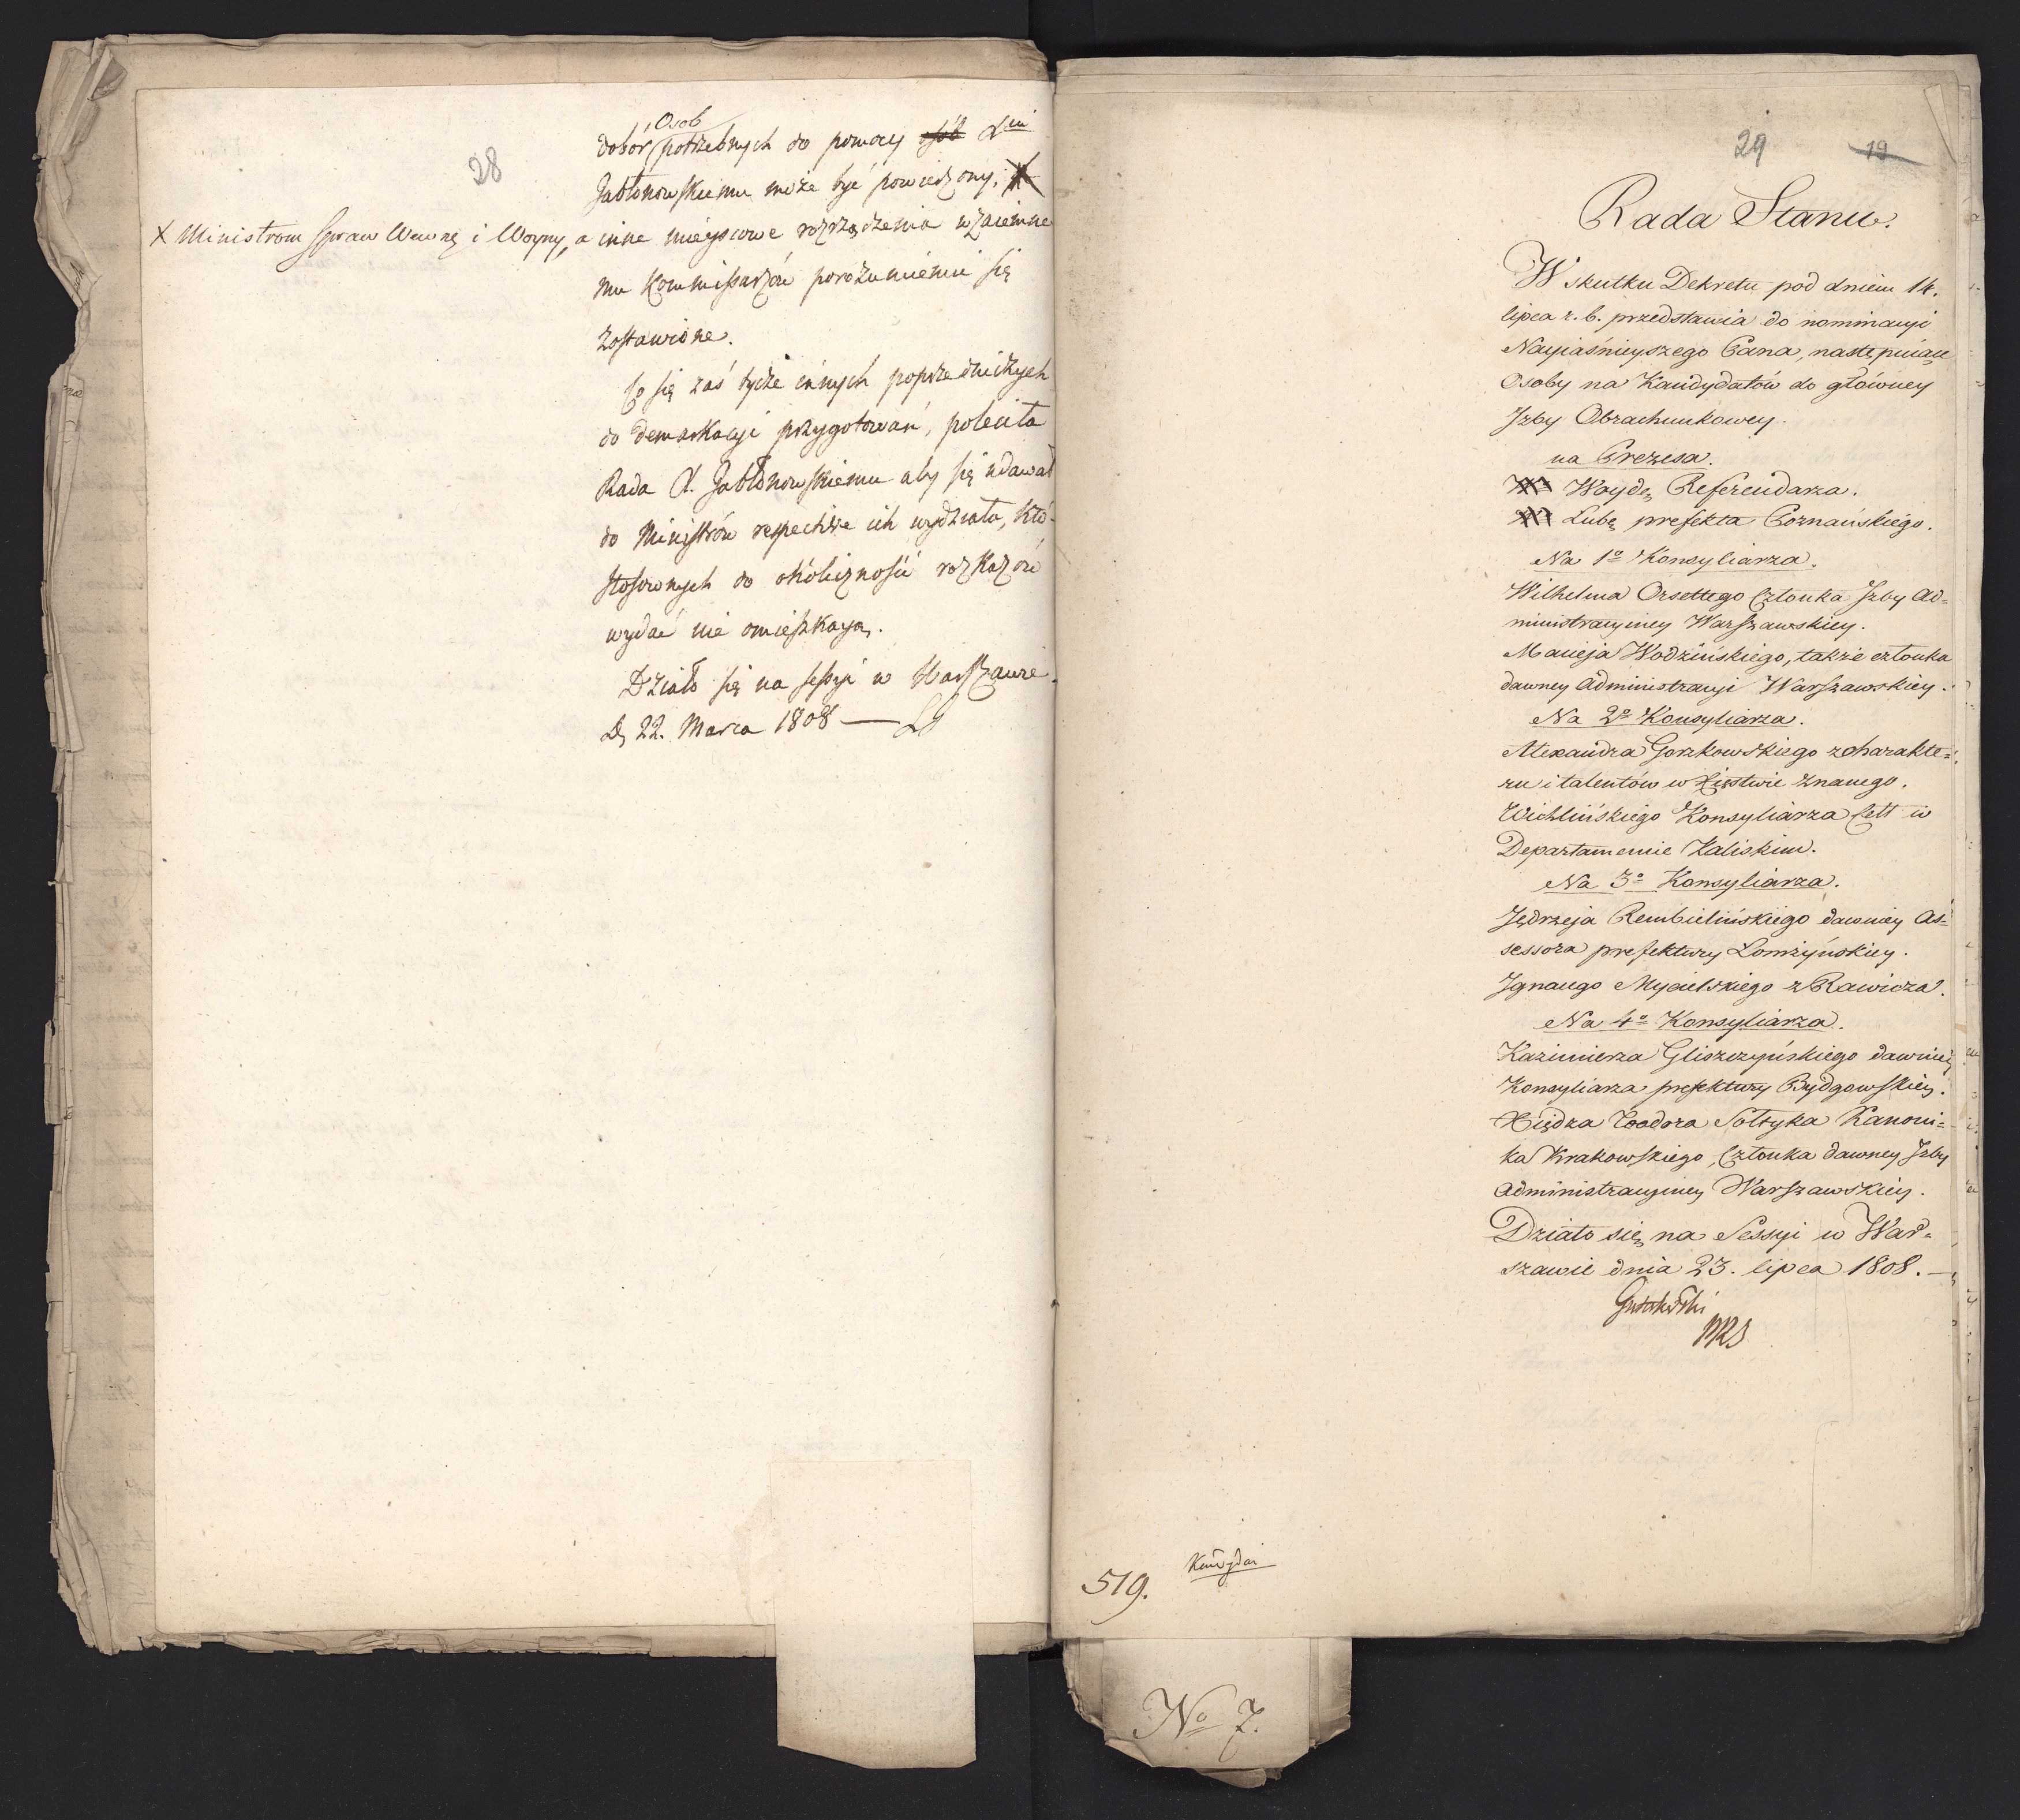 28
Osob
dobór potrzebnych do pomocy osób X<sup>ciu</sup>
Jabłonowskiemu może być powierzony. X
X Ministrom Spraw Wewnę i Woyny, a inne mieyscowe rozrządzenia wzaiemne
mu Kommissarzów porozumieniu się
zostawione.
Co się zaś tycze innych poprzedniczych
do demarkacyi przygotowań, poleciła
Rada X. Jabłonowskiemu aby się udawał
do Ministrów respective ich wydziału, któ-
stosownych do okoliczności rozkazów
wydać nie omieszkaią.
Działo się na sessyi w Warszawie
D. 22. Marca 1808 —
29 19
Rada Stanu.
W skutku Dekretu pod dniem 14.
lipca r. b. przedstawia do nominacyi
Nayiaśnieyszego Pana, następuiące
Osoby na Kandydatów do główney
Izby Obrachunkowey.
na Prezesa.
Woydę Referendarza.
Lubę prefekta Poznańskiego.
Na 1º Konsyliarza.
Wilhelma Orsettego Członka Izby Ad=
ministracyiney Warszawskiey.
Macieja Wodzińskiego, także członka
dawney Administracyi Warszawskiey.
Na 2º Konsyliarza.
Alexandra Gorzkowskiego z charakte=
ru i talentów w Xięstwie znanego.
Wichlińskiego Konsyliarza Celt w
Departamencie Kaliskim.
Na 3º Konsyliarza.
Jędrzeja Rembielińskiego dawniey As=
sessora prefektury Łomżyńskiey.
Ignacego Mycielskiego z Rawicza.
Na 4º Konsyliarza.
Kazimierza Gliszczyńskiego dawniey
Konsyliarza prefektury Bydgowskiey.
Xiędza Teodora Sołtyka Kanoni=
ka Krakowskiego, Członka dawney Izby
Administracyiney Warszawskiey.
Działo się na Sessyi w War=
szawie dnia 23. lipca 1808. —
Gutakowski
PRS
519.
No 7.